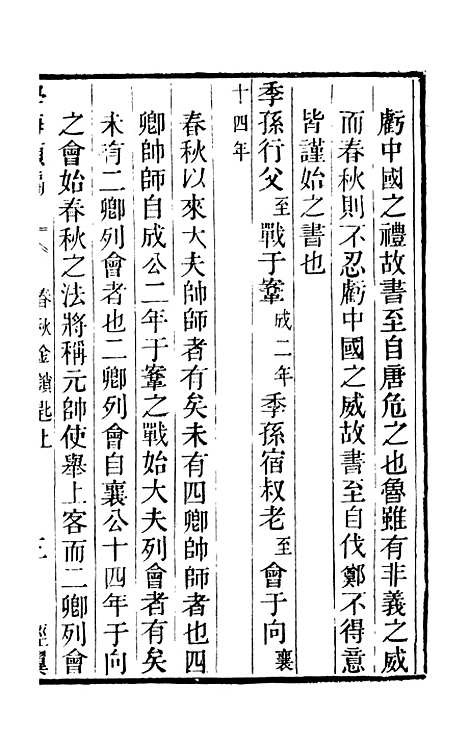 虧中國之禮故書至自唐危之也魯雖有非義之威
而春秋則不忍虧中國之威故書至自伐鄭不得意
皆謹始之書也
季孫行父至戰于鞌成二年季孫宿叔老至會于向襄
十四年
春秋以來大夫帥師者有矣未有四卿帥師者也四
卿帥師自成公二年于鞌之戰始大夫列會者有矣
未有二卿列會者也二卿列會自襄公十四年于向
之會始春秋之法將稱元帥使舉上客而二卿列會
春秋金鎖匙上